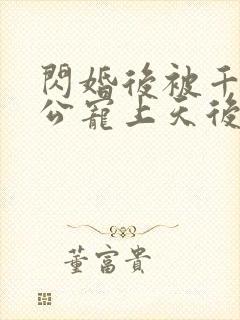 閃婚後被千
公寵上天後
董富貴